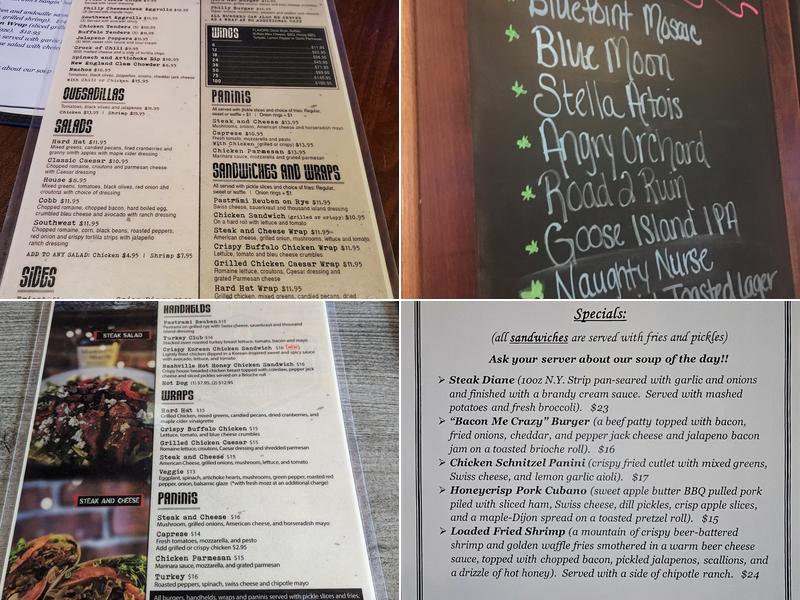 Philly Cheesesteak Eggrolls $10.95
Southwest Eggrolls $10.95
Chicken Tenders
Buffalo Tenders
Jalapeno Poppers
Crock of Chili $9.95
Spinach and Artichoke Dip $10.95
New England Clam Chowder $6.95
Nachos $10.95
Tomatoes, black olives, jalapeños, onions, cheddar jack cheese
With Chili or Chicken $15.95
QUESADILLAS
Tomatoes, black olives and jalapenos,
Chicken $13.95 | Shrimp $15.95
SALADS
Hard Hat $11.95
Mixed greens, candied pecans, fired cranberries and
granny smith apples with maple cider dressing
Classic Caesar $10.95
Chopped romaine, croutons and parmesan cheese
with Caesar dressing
House $8.95
Mixed greens, tomatoes, black olives, red onion and
croutons with choice of dressing
Cobb $11.95
Chopped romaine, chopped bacon, hard boiled egg,
crumbled bleu cheese and avocado with ranch dressing
Southwest $11.95
Chopped romaine, corn, black beans, roasted peppers,
red onion and crispy tortilla strips with jalapeño
ranch dressing
ADD TO ANY SALAD: Chicken $4.95 | Shrimp $7.95
SIDES
Philly Burger
ALL BURGERS CAN ALSO BE SERVED
AS A WRAP AT NO ADDITIONAL COST
WINGS
PANINIS
All served with pickle slices and choice of fries: Regular,
sweet or waffle + $1 | Onion rings + $1
Steak and Cheese $13.95
Mushrooms, onions, American cheese and horseradish mayo
Caprese $10.95
Fresh tomato, mozzarella and pesto
With Chicken (grilled or crispy) $13.95
Chicken Parmesan $13.95
Marinara sauce, mozzarella, and grated parmesan
SANDWICHES AND WRAPS
All served with pickle slices and choice of fries: Regular,
sweet or waffle | Onion rings + $1
Pastrami Reuben on Rye $11.95
Swiss cheese, sauerkraut and thousand island dressing
Chicken Sandwich (grilled or crispy) $10.95
On a hard roll with lettuce and tomato
Steak and Cheese Wrap $11.95
American cheese, grilled onion, mushrooms, lettuce and tomato
Crispy Buffalo Chicken Wrap $11.95
Lettuce, tomato and bleu cheese crumbles
Grilled Chicken Caesar Wrap $11.95
Romaine lettuce, croutons, Caesar dressing and
grated Parmesan cheese
Hard Hat Wrap $11.95
Grilled chicken, mixed greens, candied pecans, dried
BluePoint Mosaic
Blue Moon
Stella Artois
Angry Orchard
Road 2 Ruin
Goose Island IPA
Naughty Nurse
Toasted Lager
STEAK SALAD
STEAK AND CHEESE
HANDHELDS
Pastrami Reuben $15
Pastrami on grilled rye with Swiss cheese, sauerkraut and thousand
island dressing
Turkey Club $16
Stacked oven roasted turkey breast lettuce, tomato, bacon and mayo
Crispy Korean Chicken Sandwich $16 (NEW)
Lightly fried chicken dipped in a Korean inspired sweet and spicy sauce
with avocado, lettuce, and tomato
Nashville Hot Honey Chicken Sandwich $16
Crispy house breaded chicken breast topped with coleslaw, pepper jack
cheese and sliced pickles served on a Brioche roll
Hot Dog (1) $7.95, (2) $12.95
WRAPS
Hard Hat $15
Grilled Chicken, mixed greens, candied pecans, dried cranberries, and
maple cider vinaigrette
Crispy Buffalo Chicken $15
Lettuce, tomato, and blue cheese crumbles
Grilled Chicken Caesar $15
Romaine lettuce, croutons, Caesar dressing and shredded parmesan
Steak and Cheese $15
American Cheese, grilled onions, mushrooms, lettuce, and tomato
Veggie $13
Eggplant, spinach, artichoke hearts, mushroom, green pepper, roasted red
pepper, onion, balsamic glaze (*with fresh mozz at an additional charge)
PANINIS
Steak and Cheese $16
Mushroom, grilled onions, American cheese, and horseradish mayo
Caprese $14
Fresh tomatoes, mozzarella, and pesto
Add grilled or crispy chicken $2.95
Chicken Parmesan $15
Marinara sauce, mozzarella, and grated parmesan
Turkey $16
Roasted peppers, spinach, swiss cheese and chipotle mayo
All burgers, handhelds, wraps and paninis served with pickle slices and fries.
Specials:
(all sandwiches are served with fries and pickles)
Ask your server about our soup of the day!!
➢ Steak Diane (10oz N.Y. Strip pan-seared with garlic and onions
and finished with a brandy cream sauce. Served with mashed
potatoes and fresh broccoli). $23
➢ “Bacon Me Crazy” Burger (a beef patty topped with bacon,
fried onions, cheddar, and pepper jack cheese and jalapeno bacon
jam on a toasted brioche roll). $16
➢ Chicken Schnitzel Panini (crispy fried cutlet with mixed greens,
Swiss cheese, and lemon garlic aioli). $17
➢ Honeycrisp Pork Cubano (sweet apple butter BBQ pulled pork
piled with sliced ham, Swiss cheese, dill pickles, crisp apple slices,
and a maple-Dijon spread on a toasted pretzel roll). $15
➢ Loaded Fried Shrimp (a mountain of crispy beer-battered
shrimp and golden waffle fries smothered in a warm beer cheese
sauce, topped with chopped bacon, pickled jalapenos, scallions, and
a drizzle of hot honey). Served with a side of chipotle ranch. $24